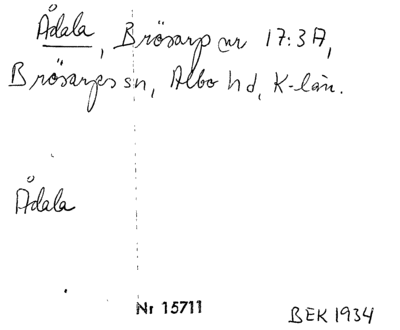 Ådala, Brösarp nr 17:3A,
Brösarps sn, Albo hd, K-län.
Ådala
Nr 15711
BEK 1934